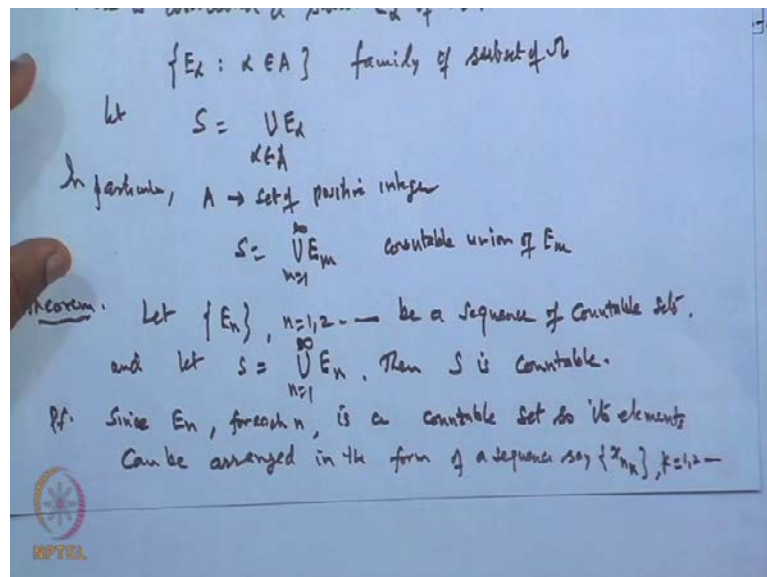 {E_α : α ∈ A} family of subset of Ω
let S = ∪ E_α
α ∈ A
In particular, A → set of positive integer
∞
S = ∪ E_m countable union of E_m
n=1
Theorem. Let {E_n}, n=1,2 - — be a sequence of countable sets.
∞
and let S = ∪ E_n. Then S is countable.
n=1
Pf. Since E_n, for each n, is a countable set so its elements
Can be arranged in the form of a sequence say {x_{n_k}}, k=1,2 —
NPTEL